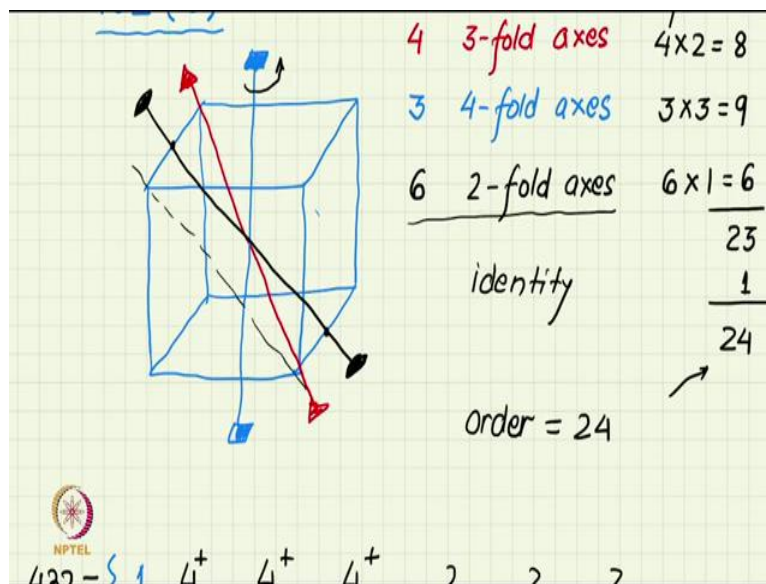 4 3-fold axes 4×2=8
3 4-fold axes 3×3=9
6 2-fold axes 6×1=6
23
identity 1
24
order = 24
NPTEL
432 - { 1 4+ 4+ 4+ 2 2 2